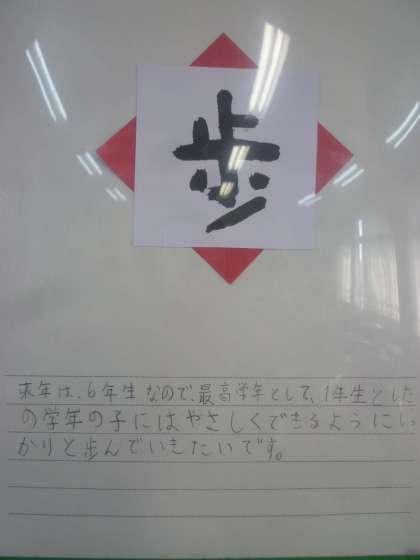 歩
来年は、6年生なので、最高学年として、1年生とした
の学年の子にはやさしくできるようにしっ
かりと歩んでいきたいです。